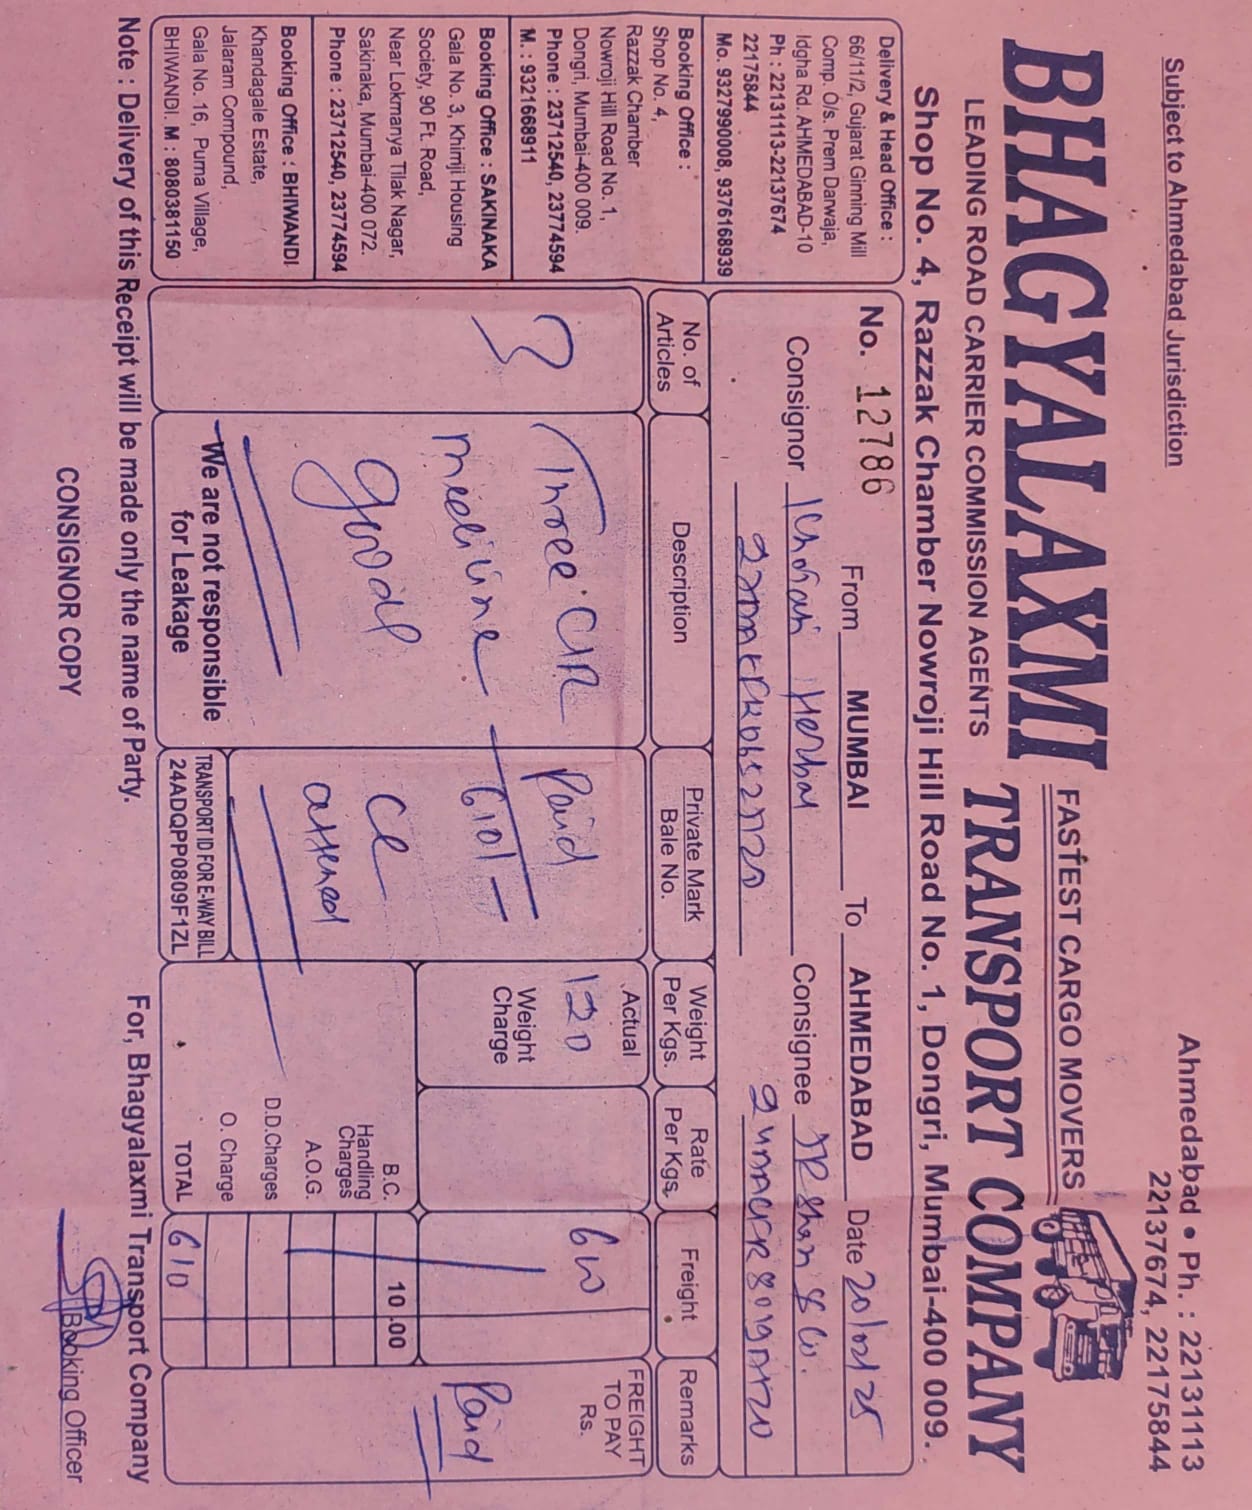 Subject to Ahmedabad Jurisdiction
Ahmedabad • Ph. : 22131113
22137674, 22175844
BHAGYALAXMI
FASTEST CARGO MOVERS
LEADING ROAD CARRIER COMMISSION AGENTS
TRANSPORT COMPANY
Shop No. 4, Razzak Chamber Nowroji Hill Road No. 1, Dongri, Mumbai-400 009.
Delivery & Head Office :
66/11/2, Gujarat Ginning Mill
Comp. O/s. Prem Darwaja,
Idgha Rd. AHMEDABAD-10
Ph : 22131113-22137674
22175844
Mo. 9327990008, 9376168939
Booking Office :
Shop No. 4,
Razzak Chamber
Nowroji Hill Road No. 1,
Dongri, Mumbai-400 009.
Phone : 23712540, 23774594
M. : 9321668911
Booking Office : SAKINAKA
Gala No. 3, Khimji Housing
Society, 90 Ft. Road,
Near Lokmanya Tilak Nagar,
Sakinaka, Mumbai-400 072.
Phone : 23712540, 23774594
Booking Office : BHIWANDI
Khandagale Estate,
Jalaram Compound,
Gala No. 16, Purna Village,
BHIWANDI. M : 8080381150
No. 12786 From MUMBAI To AHMEDABAD Date 20/02/25
Consignor Herbal Consignee Shah & Co.
No. of Articles
Description
Private Mark
Bale No.
Weight Per Kgs.
Rate Per Kgs.
Freight
Remarks
3
Three
medicine
good
Paid
610/-
attened
Actual
120
Weight Charge
600
FREIGHT
TO PAY
Rs.
Paid
B.C. 10.00
Handling Charges
A.O.G.
D.D.Charges
O. Charge
TOTAL 610
We are not responsible
for Leakage
TRANSPORT ID FOR E-WAY BILL
24ADQPP0809F1ZL
Note : Delivery of this Receipt will be made only the name of Party.
For, Bhagyalaxmi Transport Company
CONSIGNOR COPY
Booking Officer